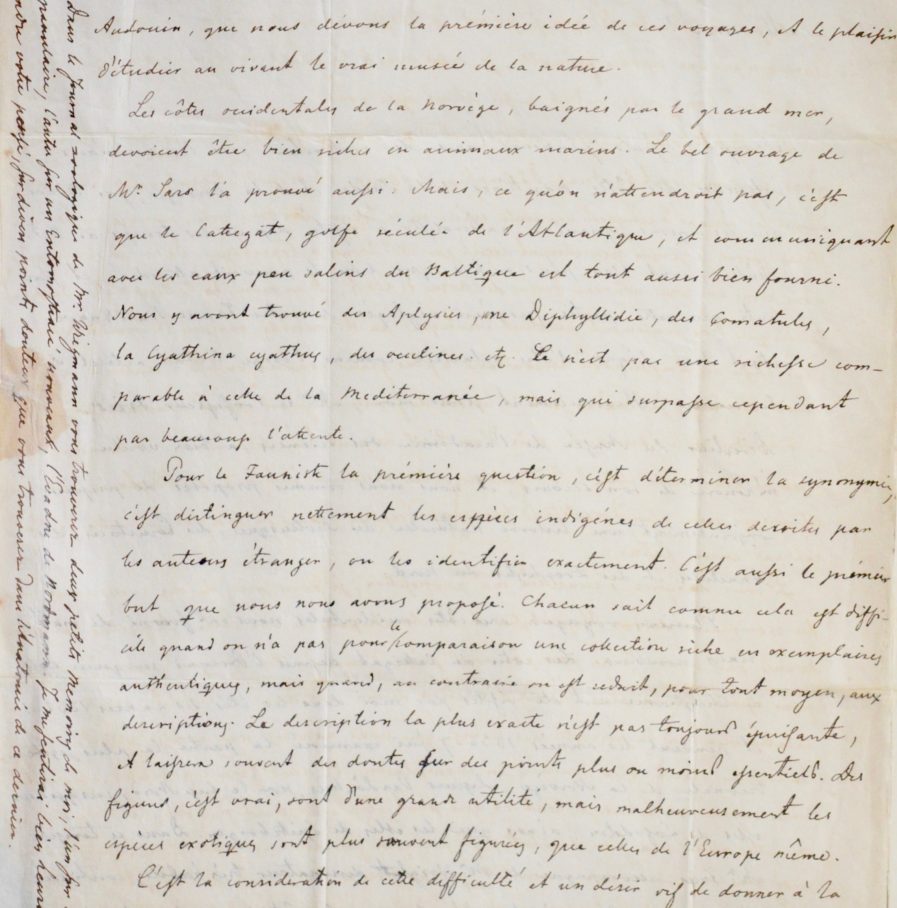 Audouin, que nous devons la prémière idée de ces voyages, et le plaisir
d'étudier au vivant le vrai musée de la nature.
Les côtes occidentales de la Norvège, baignés par le grand mer,
devoient être bien riches en animaux marins. Le bel ouvrage de
Mr. Sars l'a prouvé aussi. Mais, ce qu'on n'attendroit pas, c'est
que le Categat, golfe réculée de l'Atlantique, et communiquant
avec les eaux peu salins du Baltique est tout aussi bien fourni.
Nous y avont trouvé des Aplysies, une Diphyllidie, des Comatules,
la Cyathina cyathus, des oculines. etc. Ce n'est pas une richesse com-
parable à celle de la Mediterranée, mais qui surpasse cependant
par beaucoup l'attente.
Pour le Fauniste la prémière question, c'est déterminer la synonymie,
c'est distinguer nettement les espèces indigénes de celles decrites par
les auteurs étranger, ou les identifier exactement. C'est aussi le prémier
but que nous nous avons proposé. Chacun sait comme cela est diffi-
cile quand on n'a pas pour la comparaison une collection riche en exemplaires
authentiques, mais quand, au contraire on est reduit, pour tout moyen, aux
descriptions. La description la plus exacte n'est pas toujours épuisante,
et laissera souvent des doutes sur des points plus ou moins essentiels. Des
figures, c'est vrai, sont d'une grande utilité, mais malheureusement les
espèces exotiques sont plus souvent figurées, que celles de l'Europe même.
C'est la consideration de cette difficulté et un désir vif de donner à la
Dans le Journal zoologique de Mr. Wiegmann vous trouverez deux petits Memoires de moi, l'un sur
l'autre sur un Entomostracé nouveau, l'Evadne de Nordmann. Je m'estimerai bien heureux
votre sur divers points douteux que vous trouverez dans l'anatomie de ce dernier.